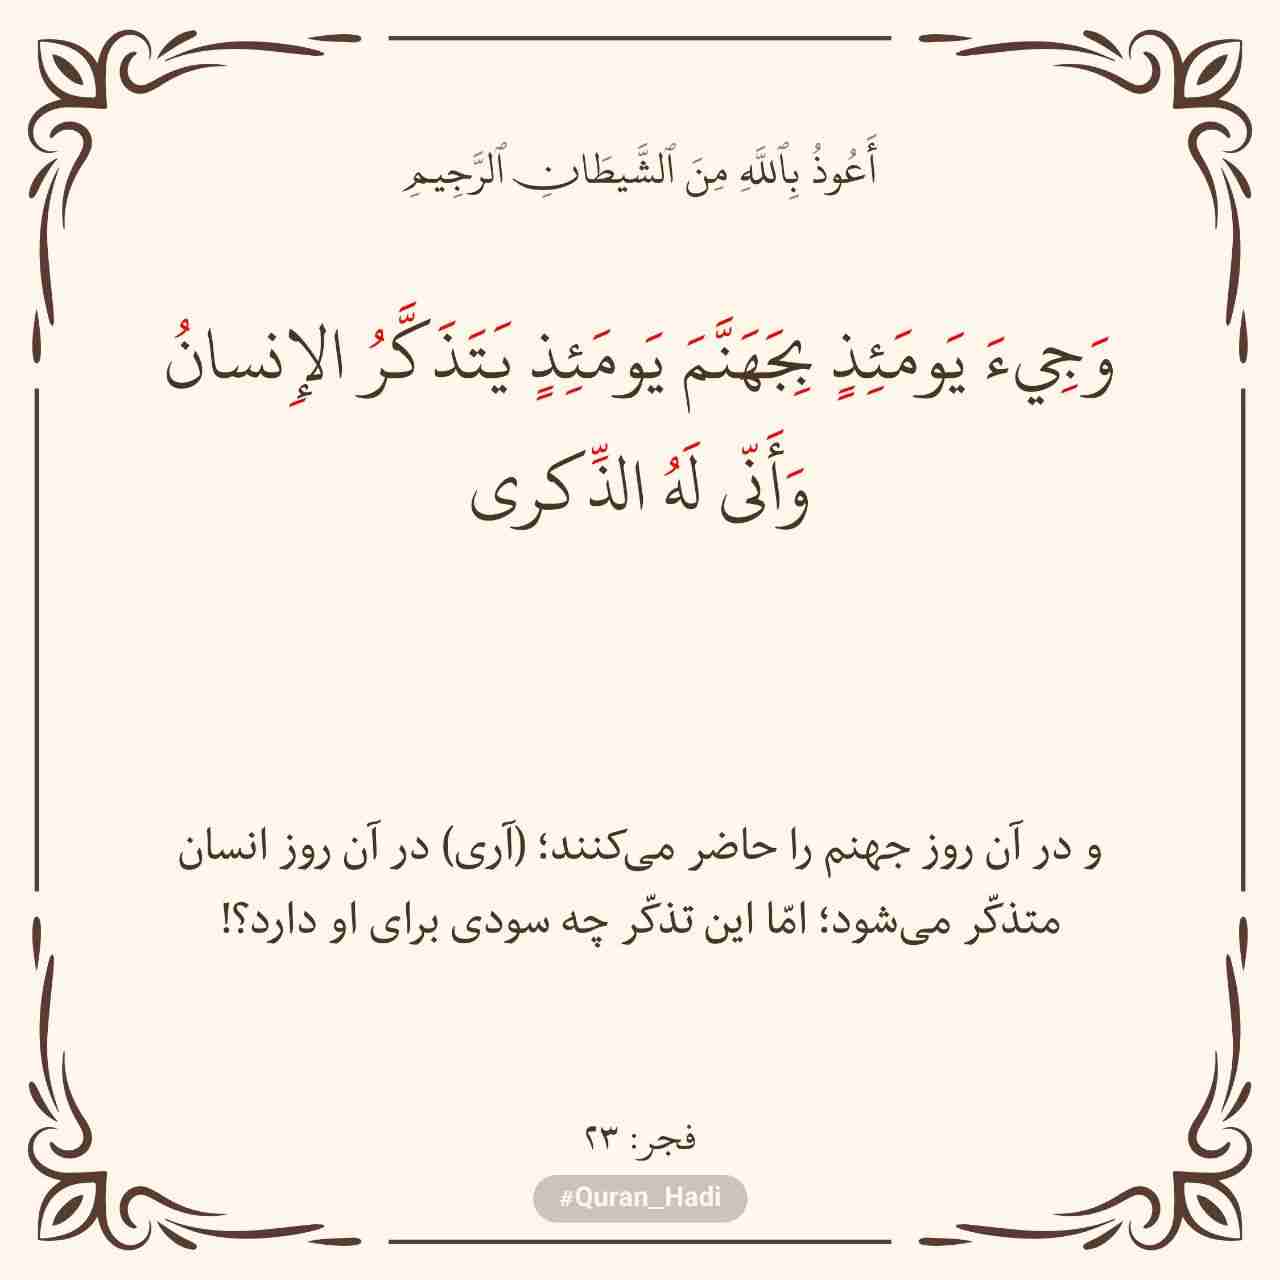 أَعُوذُ بِٱللَّهِ مِنَ ٱلشَّيطَانِ ٱلرَّجِيمِ
وَجِيءَ يَومَئِذٍ بِجَهَنَّمَ يَومَئِذٍ يَتَذَكَّرُ الإِنسانُ
وَأَنّى لَهُ الذِّكرى
و در آن روز جهنم را حاضر می‌کنند؛ (آری) در آن روز انسان
متذکّر می‌شود؛ امّا این تذکّر چه سودی برای او دارد؟!
فجر: ۲۳
#Quran_Hadi